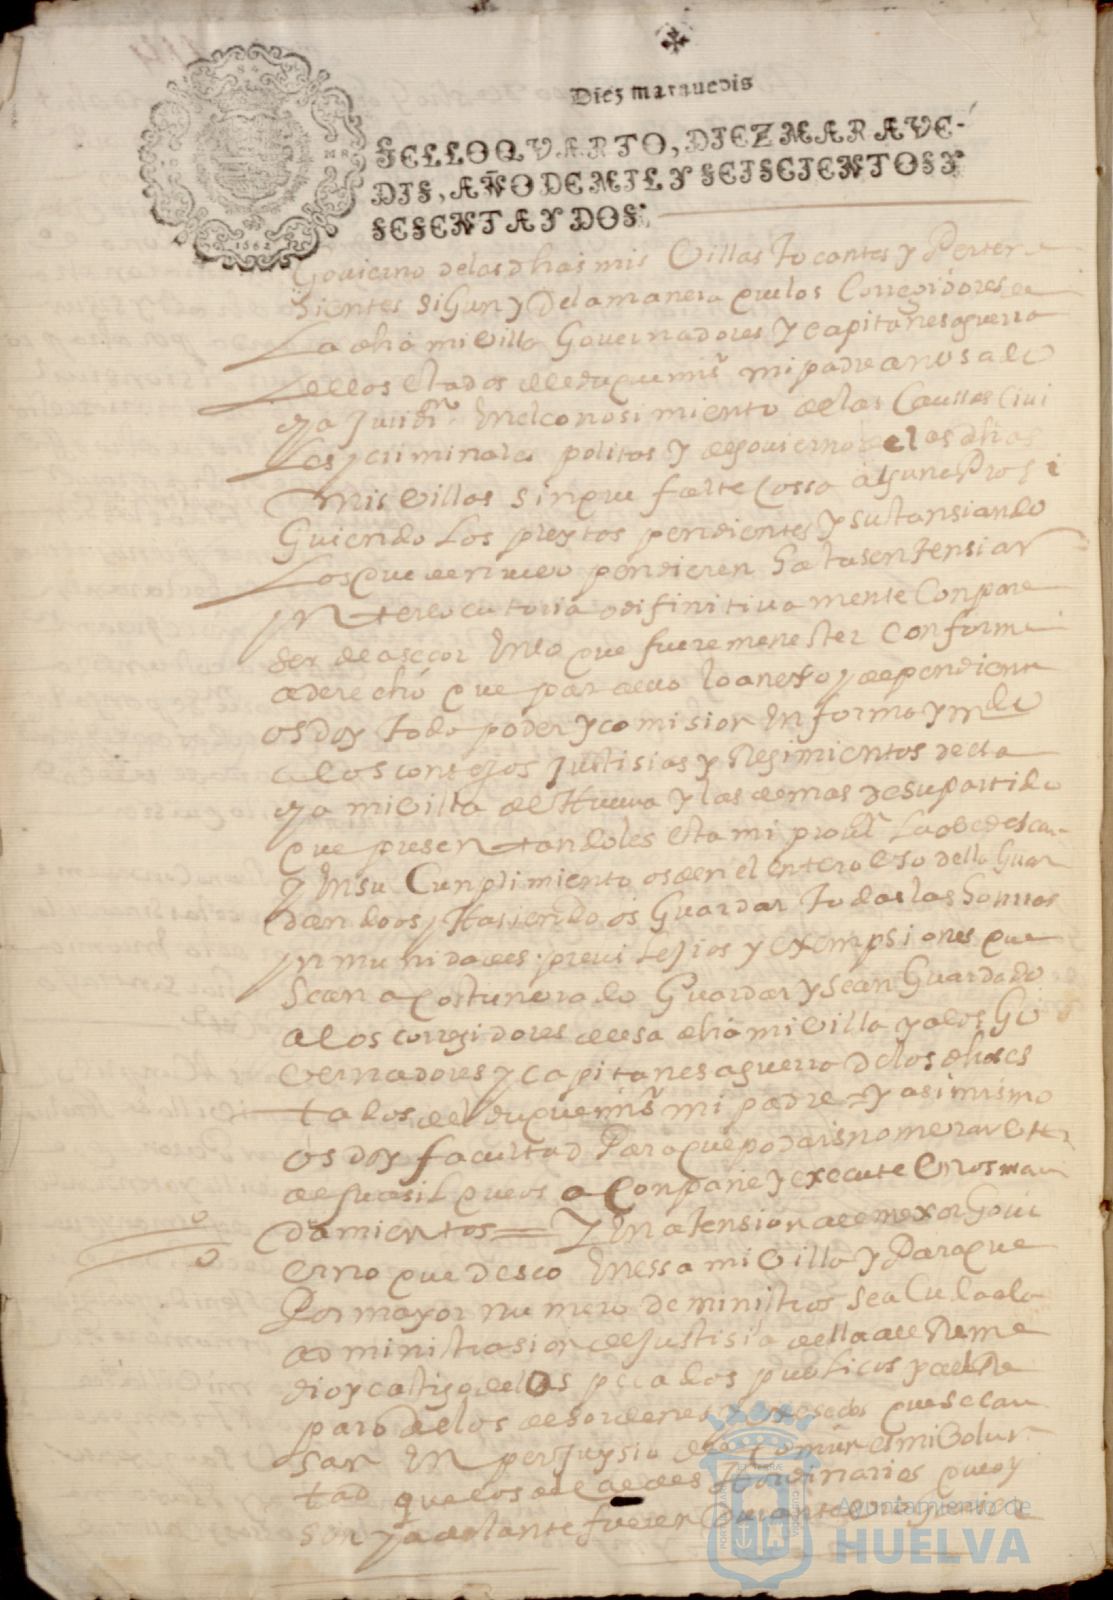 Diez marauedis
SELLO QVARTO, DIEZ MARAVE-
DIS, AÑO DE MIL Y SEISCIENTOS Y
SESENTA Y DOS.
1662
Govierno de las dhas mis Villas tocantes y Perten
sientes sigun y De la manera que los Corregidores de
La dha mi Villa Governadores y capitanes a guerra
de los estados del duque mi sr mi padre an usado
en el conosimiento de las Caussas Civi
Les y criminales politos y de govierno de las dhas
mis Villas sin que falte Cossa alguna Prosi
Guiendo Los pleytos pendientes y sustansiando
Los que de nuevo pendieren hasta sentensiar
ynterlocutoria o difinitivamente Con pare
ser de asesor en lo que fuere menester conforme
a derecho que para ello lo anexo y dependiente
os doy todo poder y comision en forma y mdo
a los consejos justisias y Regimientos de esta
mi Villa de Huelva y las demas de su partido
que presentandoles esta mi provn La obedescan
y en su Cunplimiento os den el entero uso della Guar
dandoos y Hasiendo os Guardar todas las honrras
ynmunidades previlejios y exempsiones que
sean acostunbrado Guardar y sean Guardado
a los corregidores de esa dha mi Villa y a los Go
vernadores y capitanes a guerra de los dhos es
tados del duque mi sr mi padre = y asimismo
os doy facultad Para que podais nomerar
alguasil que os aconpañe y execute Vros man
damientos = Y en atension al mexor Govi
erno que deseo en essa mi Villa y Para que
Por mayor numero de ministros sea
administrasion de justisia della de Reme
dio y castigo de los pecados publicos y del Re
paro de los desordenes y exsesos que se cau
san en perjuysio del comun es mi Volun
tad que los alcaldes Hordinarios que oy
son y adelante fueren
Ayuntamiento de
HUELVA